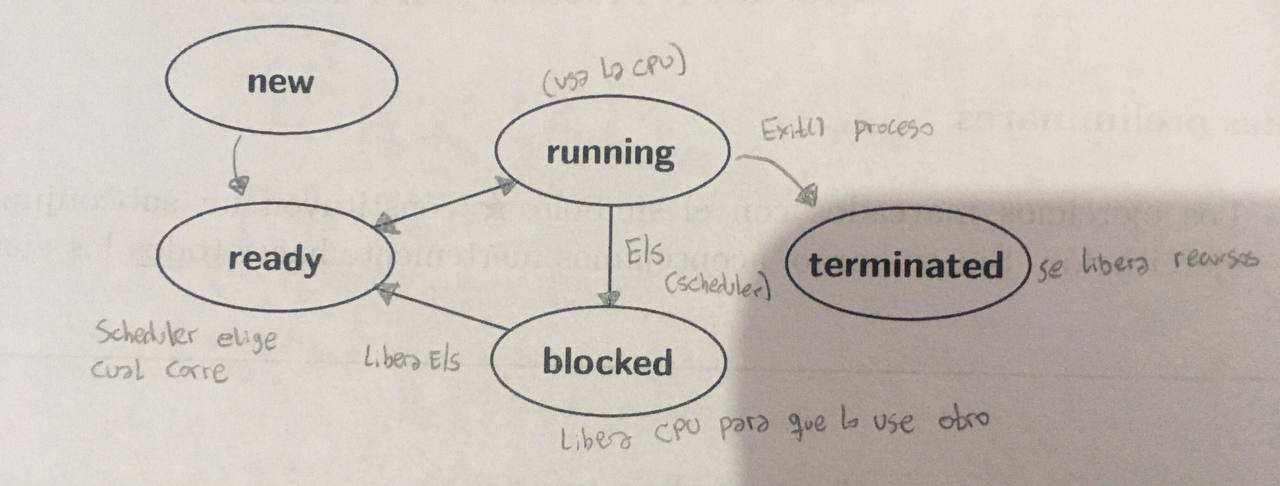 new
(usa la CPU)
running
Exit() proceso
ready
E/s
(scheduler)
terminated
se libera recursos
Scheduler elige
cual corre
Libera E/s
blocked
Libera CPU para que lo use otro
preliminares